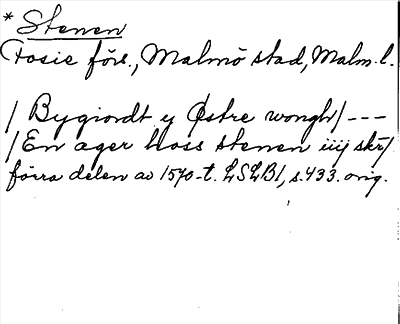 * Stenen
Fosie förs., Malmö stad, Malm. l.
/ Bygiordt y Østre wongh / ---
/ En ager hoss stenen iiij skr /
förra delen av 1570-t. LSLB1, s. 433. orig.